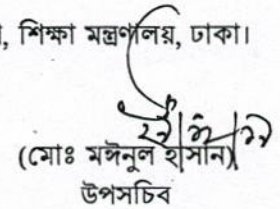 , শিক্ষা মন্ত্রণালয়, ঢাকা।
(মোঃ মঈনুল হাসান)
উপসচিব